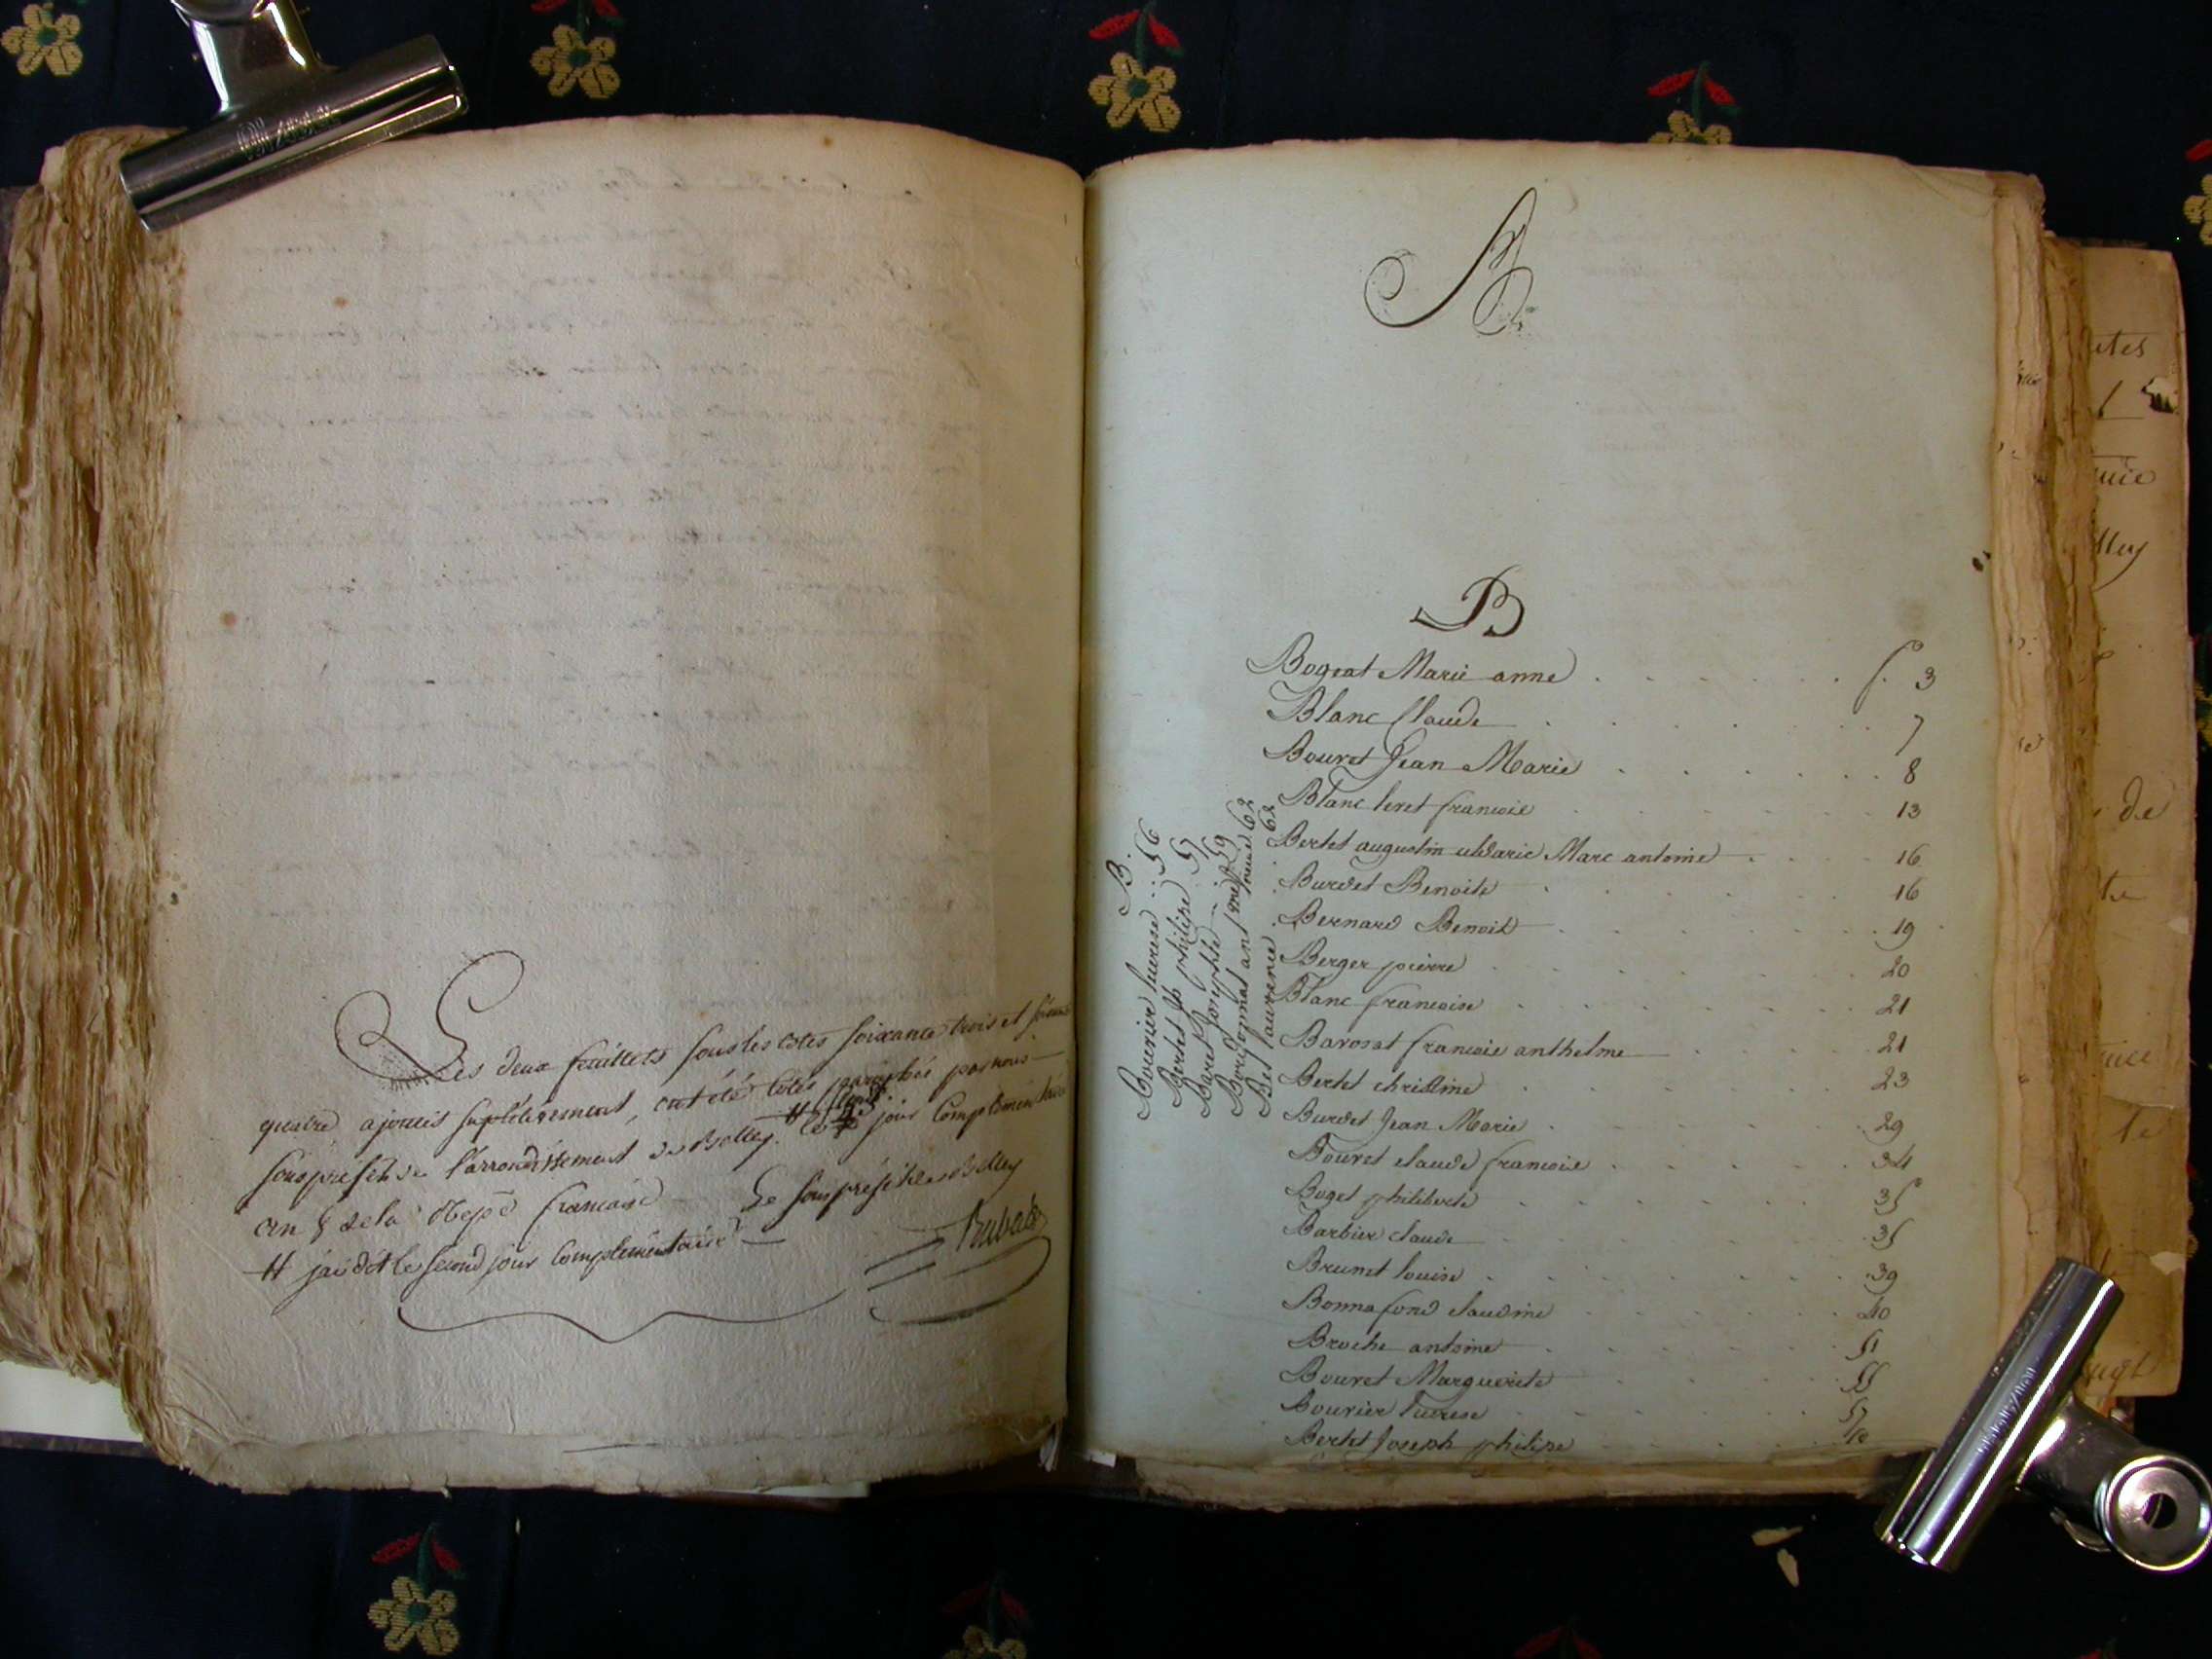 Les deux feuillets sous les cotes soixante trois et soixante
quatre, ajoutés suplétivement, ont été cotés paraphés par nous
sousprefet de l'arrondissement de Belley. le jour Complémentaire
an 8 de la Repe francaise Le sousprefet de Belley
# jai dit le second jour complementaire
Rubat
A
B
Bogeat Marie anne f.o 3
Blanc Claude 7
Bouret Jean Marie 8
Blanc francois 13
Bertet augustin uldaric Marc antoine 16
Burdet Benoite 16
Bernard Benoit 19
Berger pierre 20
Blanc francoise 21
Barosat francois anthelme 21
Bertet christine 23
Burdet Jean Marie 29
Bouret claude francois 34
Buget philiberte 35
Barbier claude 35
Brunet louise 39
Bonnafond claudine 40
Broche antoine 51
Bouret Marguerite 55
Bourier Turese 57
Bertet Joseph philipe
B.
Bourier turese 56
Bertet Jh philipe 57
Baret Josephte 59
62
Bet laurence 62